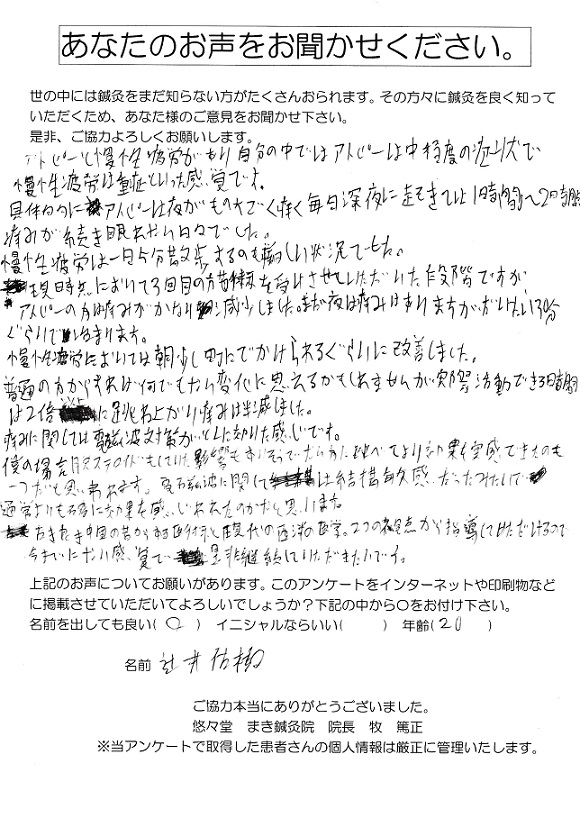 あなたのお声をお聞かせください。
世の中には鍼灸をまだ知らない方がたくさんおられます。その方々に鍼灸を良く知って
いただくため、あなた様のご意見をお聞かせ下さい。
是非、ご協力よろしくお願いします。
アトピーと慢性疲労があり自分の中ではアトピーは中程度の症状で
慢性疲労は重症といった感覚です。
具体的にアトピーは夜がものすごく痒く毎日深夜に起きては1時間〜2時間
痛みが続き眠れない日々でした。
慢性疲労は一日5分散歩するのも難しい状況でした。
現時点において3回目の施術を受けさせていただいた段階ですが
アトピーの方は痛みがかなり減少しました。まだ夜は痛みはありますがだいたい30分
ぐらいで治まります。
慢性疲労においては朝少し町にでかけられるぐらいに改善しました。
普通の方からすれば何でもない変化に思えるかもしれませんが実際活動できる時間
は2倍に跳ね上がり痛みは半減しました。
痛みに関しては電磁波対策がとくに効いた感じです。
僕の場合脱ステロイドもしていた影響もありそって
一つだと思われます。電磁波に関しては結構敏感だったみたいで
通常よりも効果を感じられたのかなと思います。
中国の昔から 現代の 医学。2つの視点から指導していただけるので
今までにない感覚で是非継続していただきたいです。
上記のお声についてお願いがあります。このアンケートをインターネットや印刷物など
に掲載させていただいてよろしいでしょうか？下記の中から○をお付け下さい。
名前を出しても良い( ○ ) イニシャルならいい( ) 年齢( 20 )
名前 辻井佑樹
ご協力本当にありがとうございました。
悠々堂 まき鍼灸院 院長 牧 篤正
※当アンケートで取得した患者さんの個人情報は厳正に管理いたします。